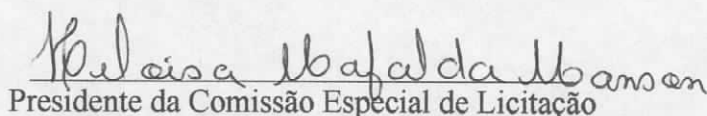 Heloisa Mafalda Manson
Presidente da Comissão Especial de Licitação